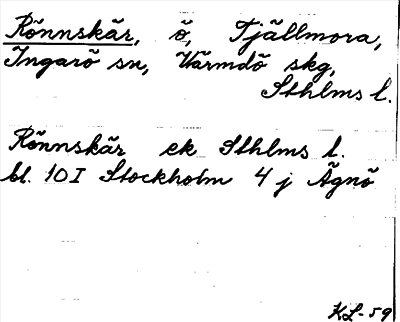 Rönnskär, ö, Tjällmora,
Ingarö sn, Värmdö skg,
Sthlms l.
Rönnskär ek Sthlms l.
bl. 10 I Stockholm 4 j Ägnö
KL-59